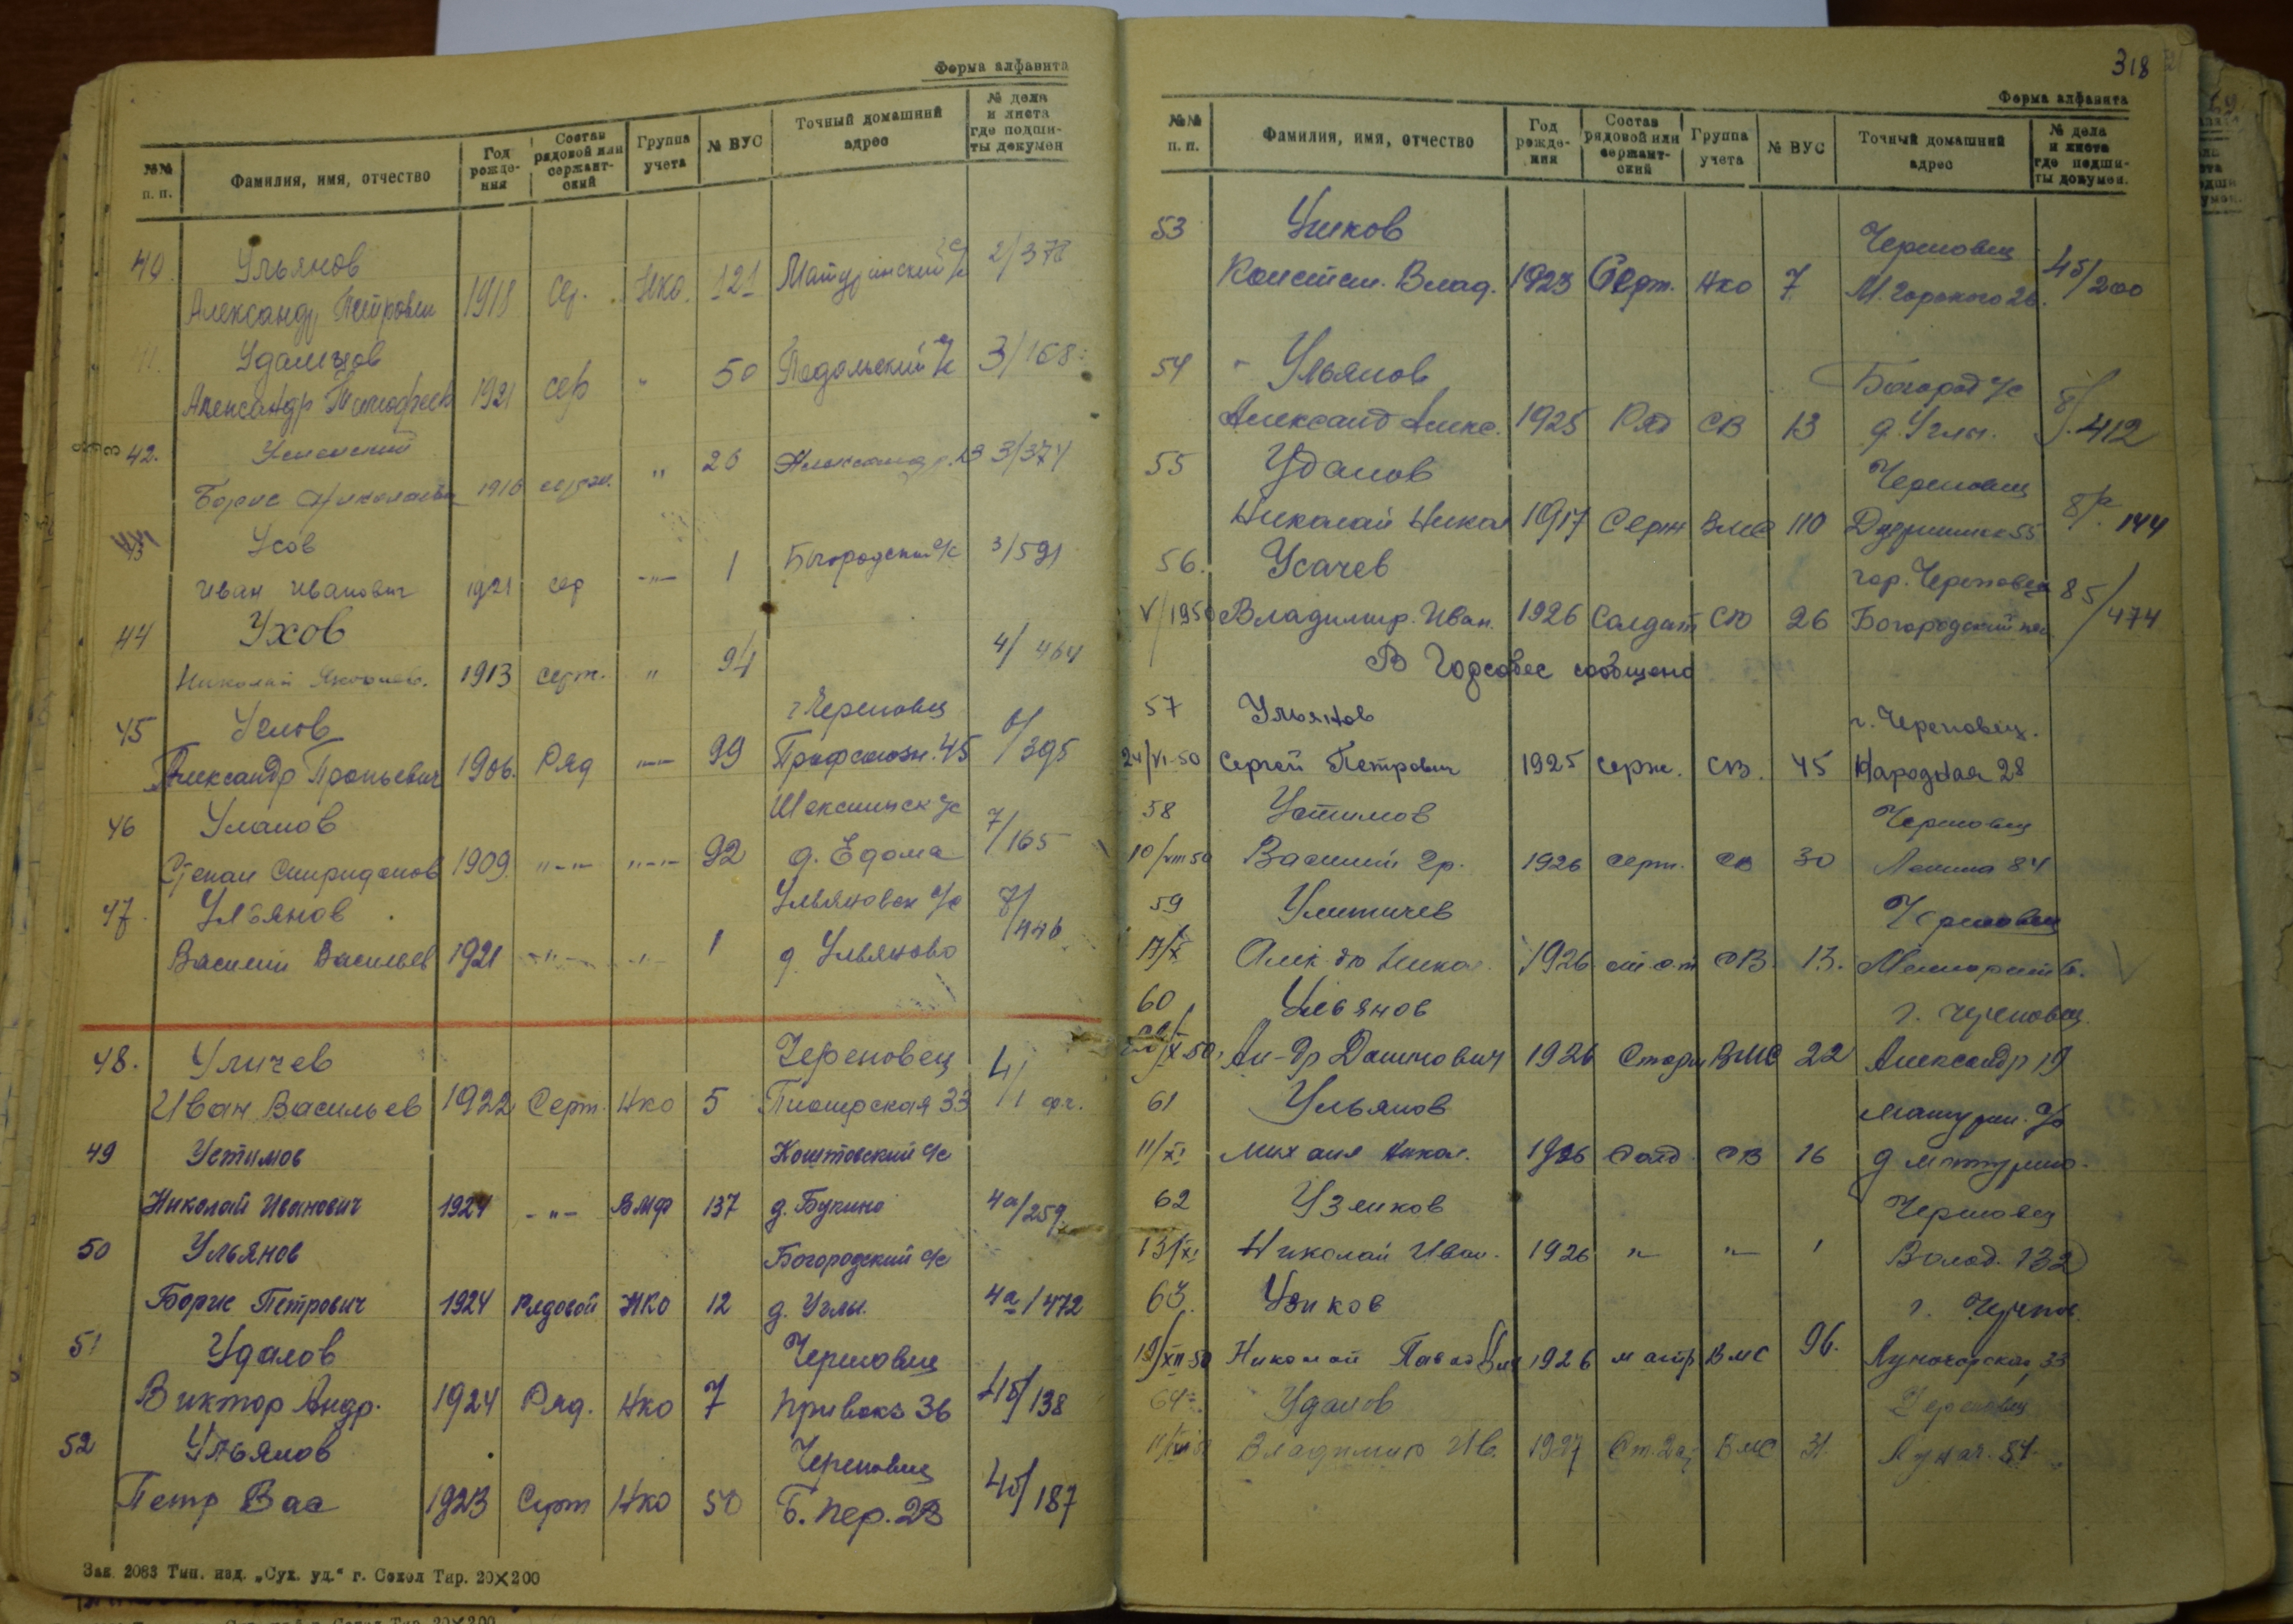 Форма алфавита
№№ п. п. Фамилия, имя, отчество Год рождения Состав рядовой или сержантский Группа учета № ВУС Точный домашний адрес № дела и листа где подшиты докумен
40. Ульянов
Александр Петрович 1918 Сер. Нко. 121 Матуринский с/с 2/378
Удальцов
Александр Тимофеев 1921 сер " 50 Подольский с/с 3/168
42. Успенский
Борис Николаевич 1916 " 26 3/374
43 Усов
Иван Иванович 1921 сер -"- 1 Богородский с/с 3/591
44 Ухов
Николай 1913 серж. " 94 4/464
45 г Череповец
Александр Прокьевич 1906. Ряд -"- 99 Профсоюзн. 45 6/395
46 Уланов Шекснинск с/с
Степан Спиридонов 1909. "-"- "-"- 92 д. Едома 7/165
47. Ульянов Ульяновск с/с
Василий Васильев 1921 -"- -"- 1 д Ульяново 8/446
48. Уличев Череповец
Иван Васильев 1922 Серж. Нко 5 Пионерская 33 4/1
49 Устимов Коштовский с/с
Николай Иванович 1924 -"- ВМФ 137 д. Букино 4а/259.
50 Ульянов Богородский с/с
Борис Петрович 1924 Рядовой НКО 12 д. Углы. 4а/472
51 Удалов Череповец
Виктор Андр. 1924 Ряд. Нко 7 Привокз 36 4б/138
52 Ульянов Череповец
Петр Вас 1923 Серж Нко 50 Б. пер. 28 4б/187
Зак. 2083 Тип. изд. „Сух. уд.“ г. Сокол Тир. 20×200
318
Форма алфавита
№№ п. п. Фамилия, имя, отчество Год рождения Состав рядовой или сержантский Группа учета № ВУС Точный домашний адрес № дела и листа где подшиты докумен.
53 Череповец
Констан. Влад. 1923 Серж. Нко 7 М. Горького 26. 4б/200
54 Ульянов Богород с/с
Александ Алекс. 1925 Ряд СВ 13 д. Углы. 8/412
55 Удалов Череповец
Николай Никол 1917 Серж ВМС 110 55 144
56. Усачев гор. Череповец 85/474
V/1950 Владимир. Иван. 1926 Солдат СВ 26 Богородский
В Горсобес сообщено
57 Ульянов г. Череповец.
24/VI-50 Сергей Петрович 1925 серж. СВ. 45 Народная 28
58 Устимов Череповец
10/VIII 50 Василий Гр. 1926 серж. СВ 30 Ленина 84
59 Улитичев Череповец
17/X Алек-др Никол. 1926 СВ. 13.
60 Ульянов г. Череповец.
Ал-др 1926 ВМС 22 Александр 19
61 Ульянов Матурин. с/с
11/XI Михаил Никол. 1926 Солд. СВ 16 д Матурино.
62 Узиков Череповец
13/XI Николай Иван. 1926 " " 1 Волод. 132
63. Узиков г. Черепов.
19/XII-50 Николай 1926 матр ВМС 96. Луночарская, 33
64 Удалов Череповец
Владимир Ив. 1927 ВМС 31. Лунач. 51.